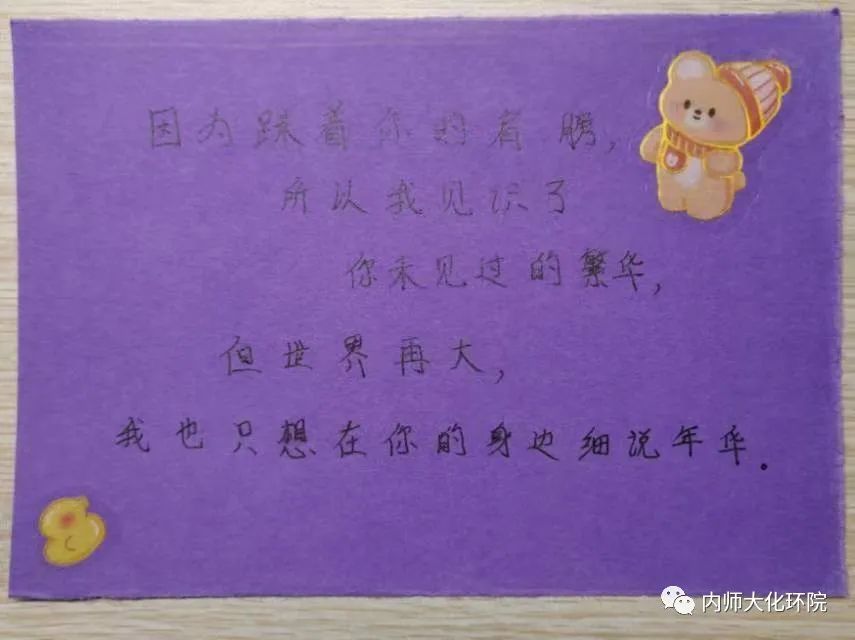 因为踩着你的肩膀，
所以我见识了
你未见过的繁华，
但世界再大，
我也只想在你的身边细说年华。
内师大化环院